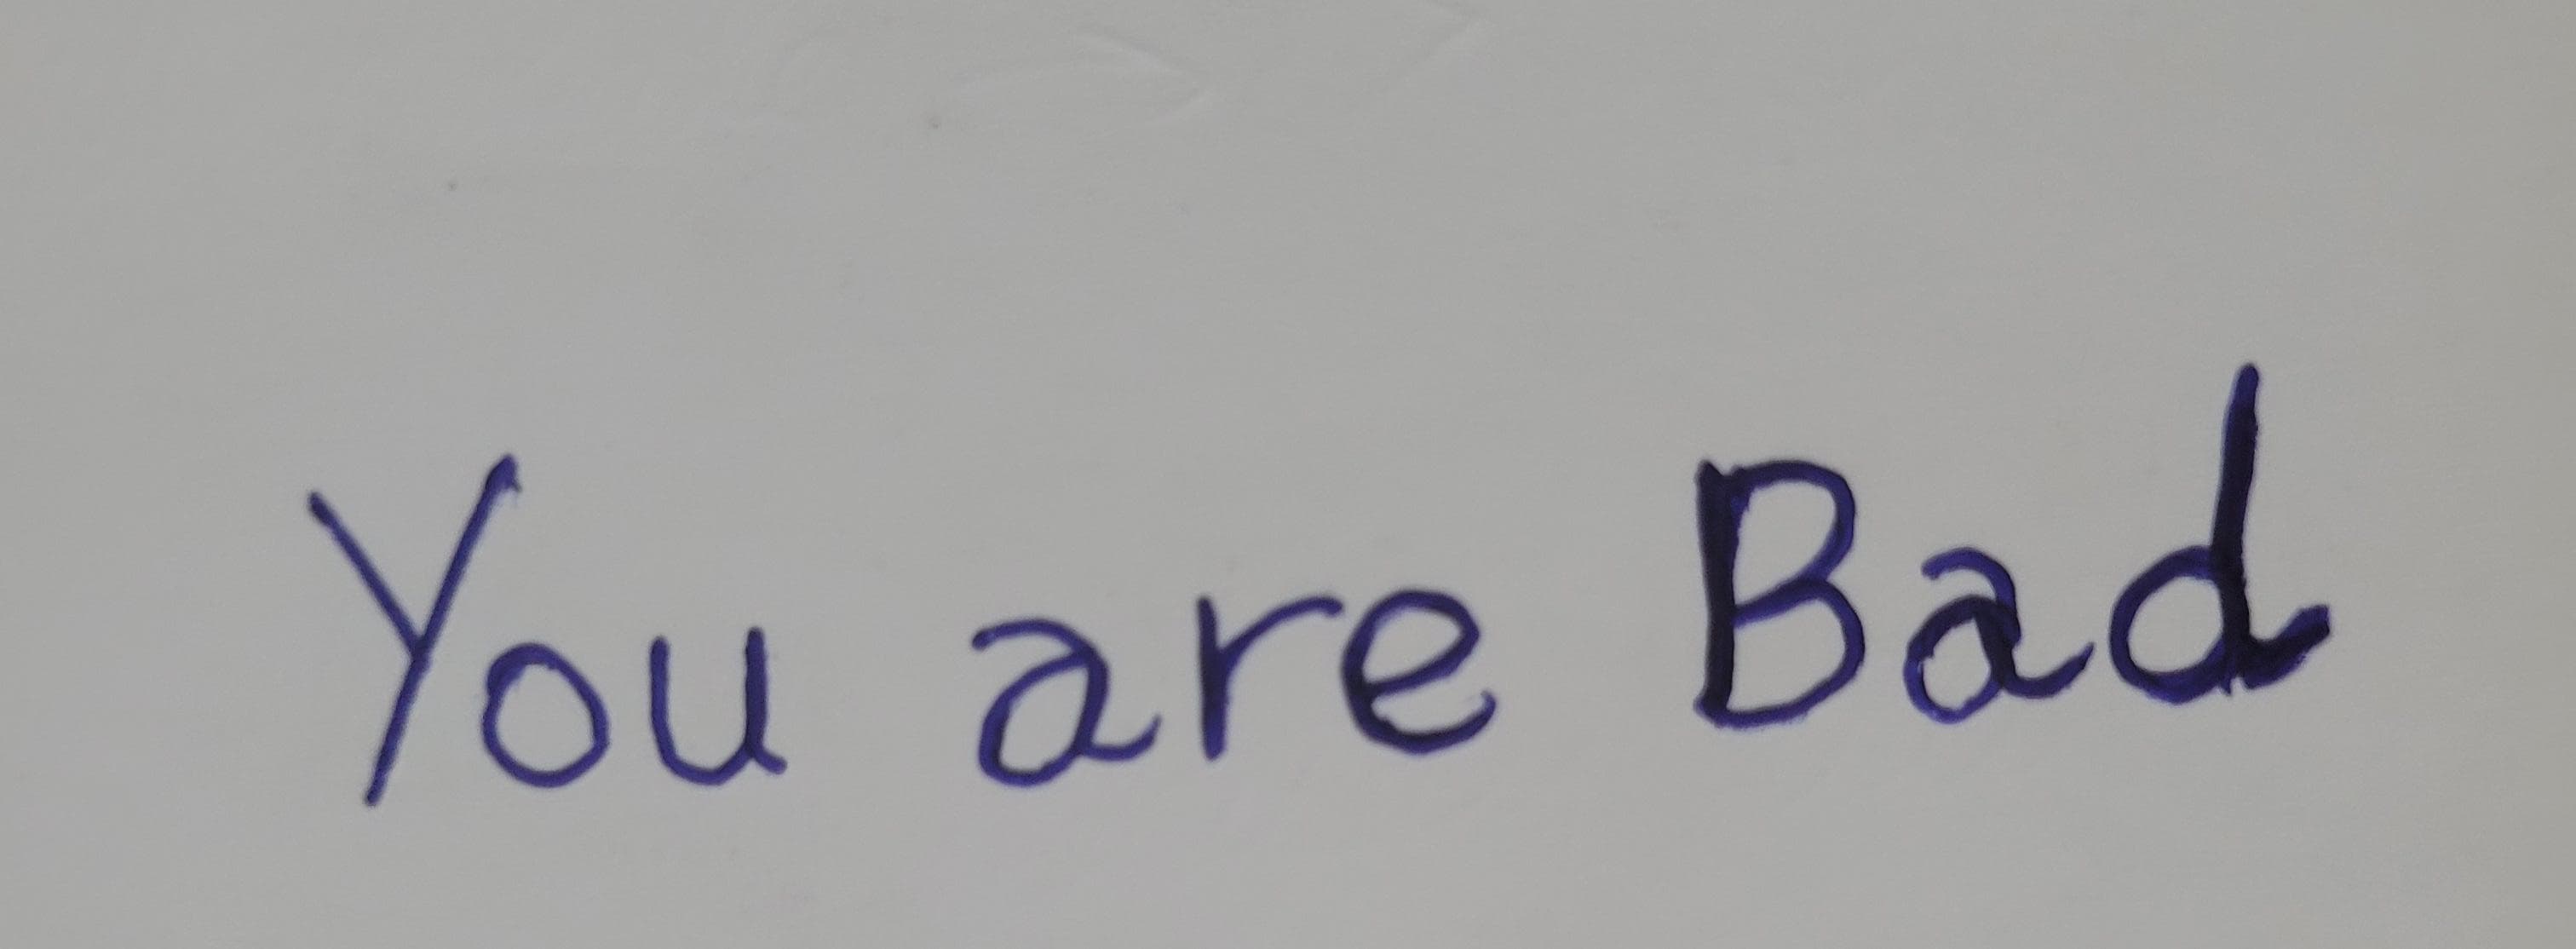 You are Bad